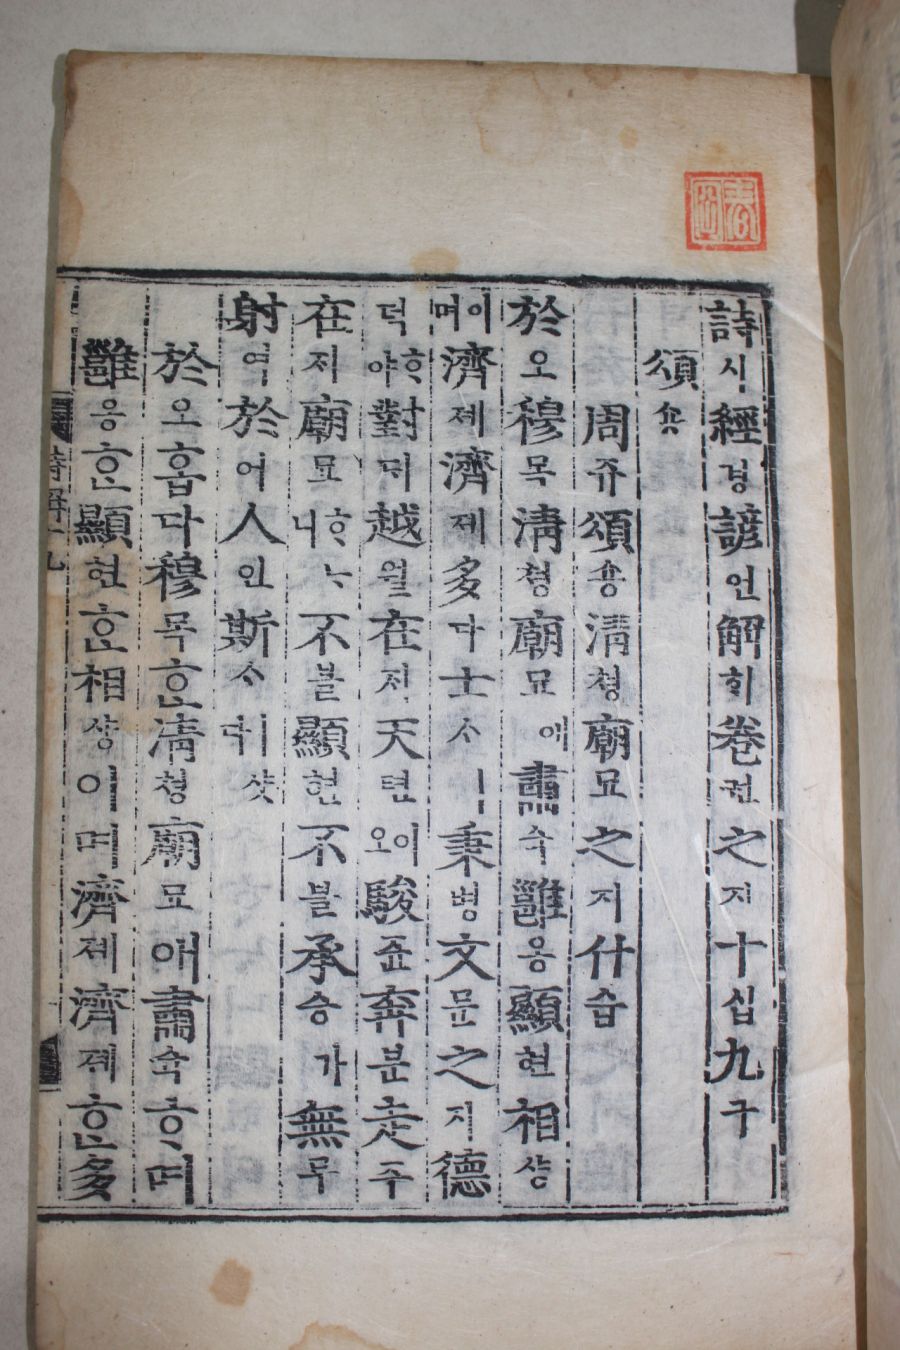 詩시經경諺언解ᄒᆡ卷권之지十십九구
頌숑
周쥬頌숑淸쳥廟묘之지什습
於오穆목淸쳥廟묘애肅슉雝옹顯현相샹
이며濟졔濟졔多다士ᄉᆞㅣ秉병文문之지德
덕ᄒᆞ야對ᄃᆡ越월在ᄌᆡ天텬이오駿쥰奔분走주
在ᄌᆡ廟묘ᄒᆞᄂᆞ니不블顯현不블承승가無무
射역於어人인斯ᄉᆞㅣ샷다
於오홈다穆목ᄒᆞᆫ淸쳥廟묘애肅슉ᄒᆞ며
雝옹ᄒᆞᆫ顯현ᄒᆞᆫ相샹이며濟졔濟졔ᄒᆞᆫ多